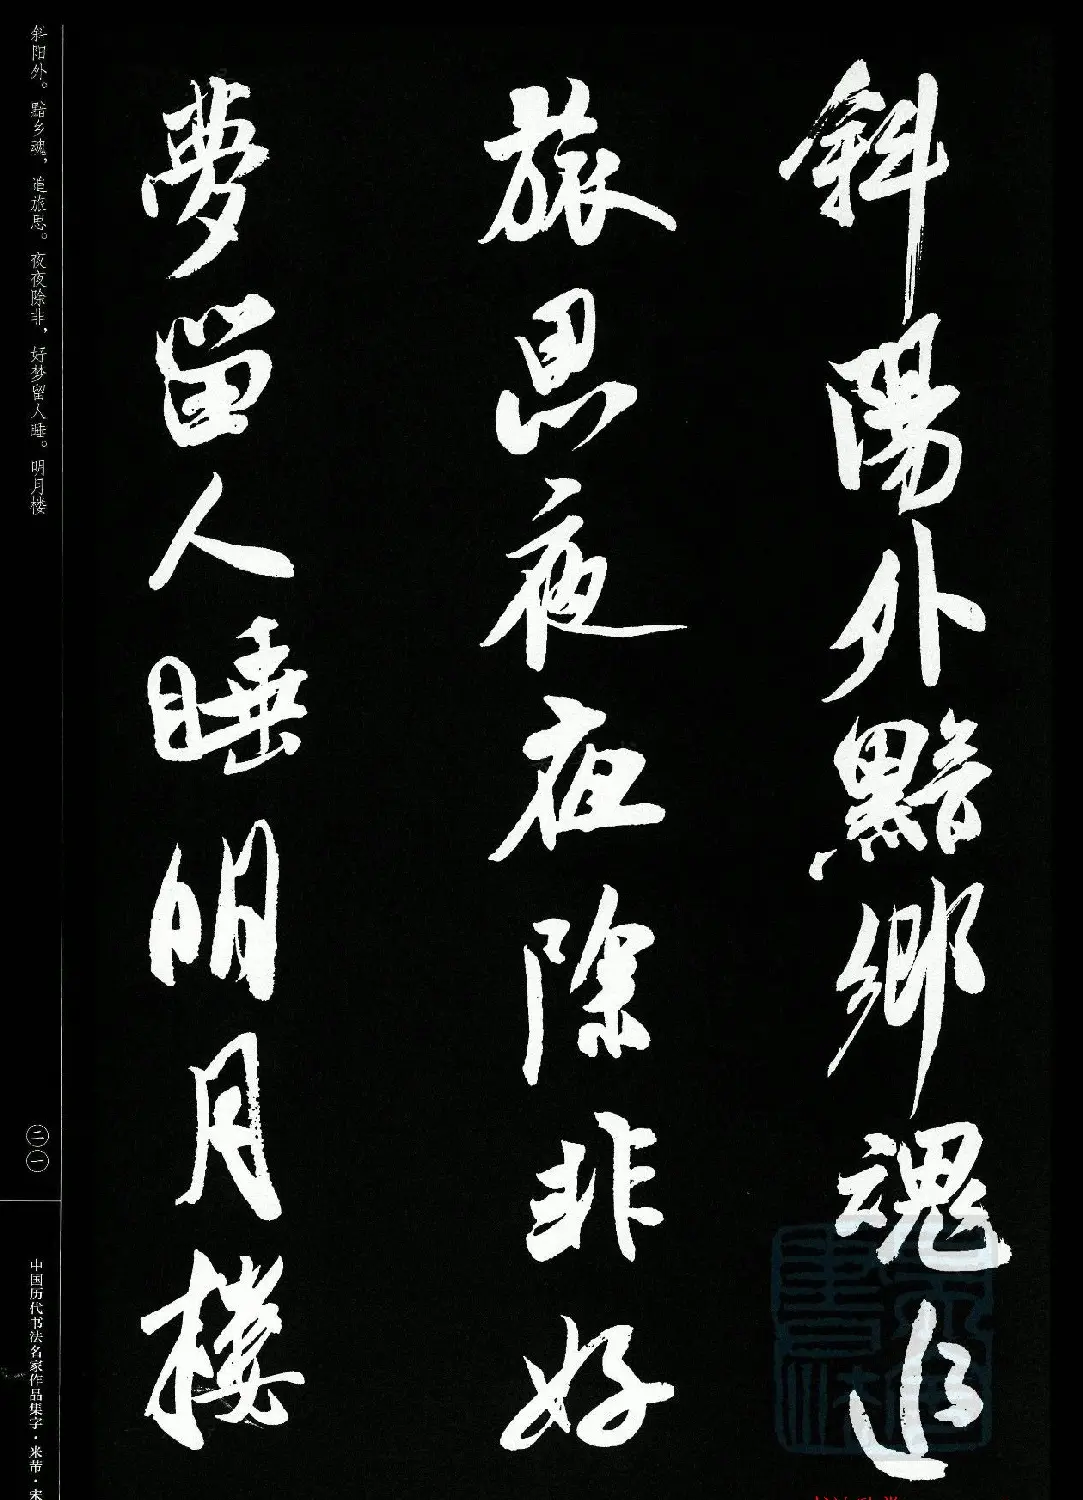 斜陽外黯鄉魂追
旅思夜夜除非好
夢留人睡明月樓
斜阳外。黯乡魂，追旅思。夜夜除非，好梦留人睡。明月楼
二一
中国历代书法名家作品集字·米芾·宋